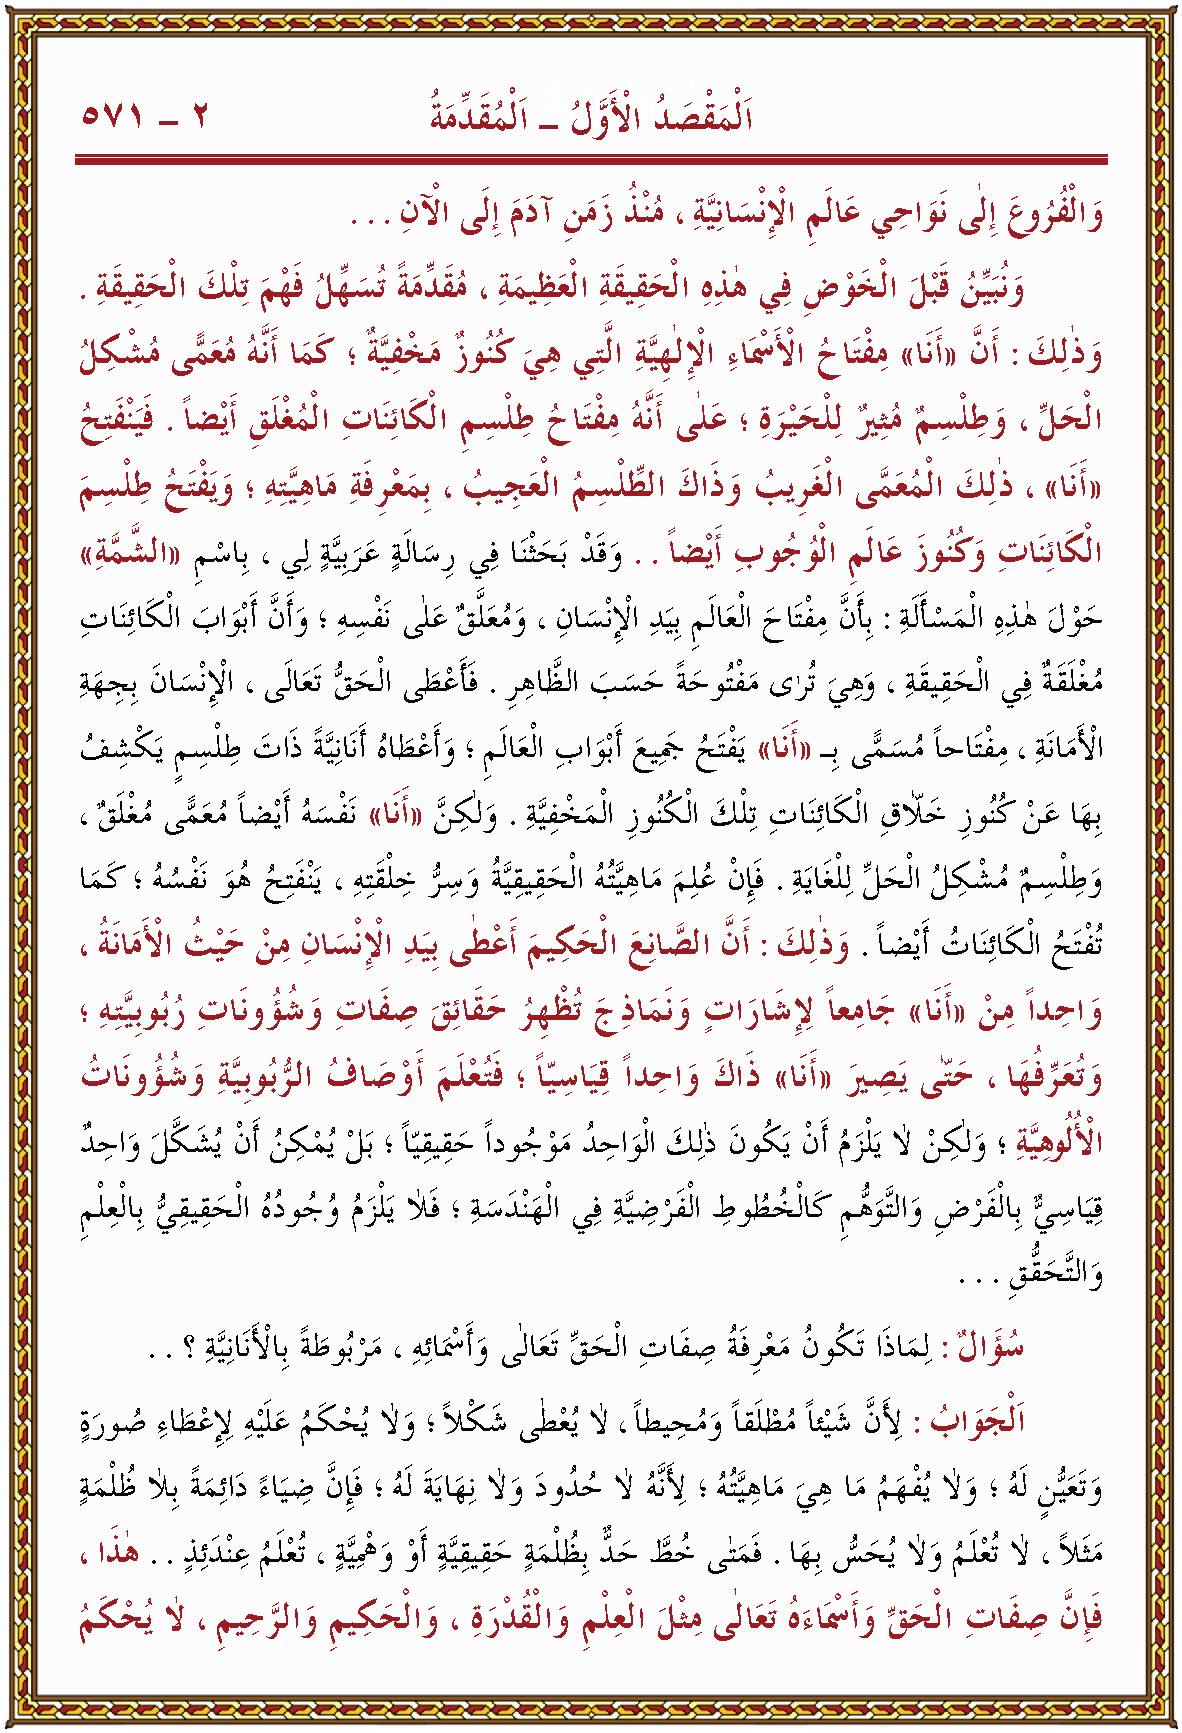 اَلْمَقْصَدُ الْأَوَّلُ – اَلْمُقَدِّمَةُ ٢ – ٥٧١
وَالْفُرُوعَ إِلٰى نَوَاحِي عَالَمِ الْإِنْسَانِيَّةِ ، مُنْذُ زَمَنِ آدَمَ إِلَى الْآنِ . . .
وَنُبَيِّنُ قَبْلَ الْخَوْضِ فِي هٰذِهِ الْحَقِيقَةِ الْعَظِيمَةِ ، مُقَدِّمَةً تُسَهِّلُ فَهْمَ تِلْكَ الْحَقِيقَةِ .
وَذٰلِكَ : أَنَّ «أَنَا» مِفْتَاحُ الْأَسْمَاءِ الْإِلٰهِيَّةِ الَّتِي هِيَ كُنُوزٌ مَخْفِيَّةٌ ؛ كَمَا أَنَّهُ مُعَمًّى مُشْكِلُ
الْحَلِّ ، وَطِلْسِمٌ مُثِيرٌ لِلْحَيْرَةِ ؛ عَلٰى أَنَّهُ مِفْتَاحُ طِلْسِمِ الْكَائِنَاتِ الْمُغْلَقِ أَيْضاً . فَيَنْفَتِحُ
«أَنَا» ، ذٰلِكَ الْمُعَمَّى الْغَرِيبُ وَذَاكَ الطِّلْسِمُ الْعَجِيبُ ، بِمَعْرِفَةِ مَاهِيَّتِهِ ؛ وَيَفْتَحُ طِلْسِمَ
الْكَائِنَاتِ وَكُنُوزَ عَالَمِ الْوُجُوبِ أَيْضاً . . وَقَدْ بَحَثْنَا فِي رِسَالَةٍ عَرَبِيَّةٍ لِي ، بِاسْمِ «الشَّمَّةِ»
حَوْلَ هٰذِهِ الْمَسْأَلَةِ : بِأَنَّ مِفْتَاحَ الْعَالَمِ بِيَدِ الْإِنْسَانِ ، وَمُعَلَّقٌ عَلٰى نَفْسِهِ ؛ وَأَنَّ أَبْوَابَ الْكَائِنَاتِ
مُغْلَقَةٌ فِي الْحَقِيقَةِ ، وَهِيَ تُرٰى مَفْتُوحَةً حَسَبَ الظَّاهِرِ . فَأَعْطَى الْحَقُّ تَعَالَى ، الْإِنْسَانَ بِجِهَةِ
الْأَمَانَةِ ، مِفْتَاحاً مُسَمًّى بِـ «أَنَا» يَفْتَحُ جَمِيعَ أَبْوَابِ الْعَالَمِ ؛ وَأَعْطَاهُ أَنَانِيَّةً ذَاتَ طِلْسِمٍ يَكْشِفُ
بِهَا عَنْ كُنُوزِ خَلَّاقِ الْكَائِنَاتِ تِلْكَ الْكُنُوزِ الْمَخْفِيَّةِ . وَلٰكِنَّ «أَنَا» نَفْسَهُ أَيْضاً مُعَمًّى مُغْلَقٌ ،
وَطِلْسِمٌ مُشْكِلُ الْحَلِّ لِلْغَايَةِ . فَإِنْ عُلِمَ مَاهِيَّتُهُ الْحَقِيقِيَّةُ وَسِرُّ خِلْقَتِهِ ، يَنْفَتِحُ هُوَ نَفْسُهُ ؛ كَمَا
تُفْتَحُ الْكَائِنَاتُ أَيْضاً . وَذٰلِكَ : أَنَّ الصَّانِعَ الْحَكِيمَ أَعْطٰى بِيَدِ الْإِنْسَانِ مِنْ حَيْثُ الْأَمَانَةُ ،
وَاحِداً مِنْ «أَنَا» جَامِعاً لِإِشَارَاتٍ وَنَمَاذِجَ تُظْهِرُ حَقَائِقَ صِفَاتِ وَشُؤُونَاتِ رُبُوبِيَّتِهِ ؛
وَتُعَرِّفُهَا ، حَتّٰى يَصِيرَ «أَنَا» ذَاكَ وَاحِداً قِيَاسِيّاً ؛ فَتُعْلَمَ أَوْصَافُ الرُّبُوبِيَّةِ وَشُؤُونَاتُ
الْأُلُوهِيَّةِ ؛ وَلٰكِنْ لَا يَلْزَمُ أَنْ يَكُونَ ذٰلِكَ الْوَاحِدُ مَوْجُوداً حَقِيقِيّاً ؛ بَلْ يُمْكِنُ أَنْ يُشَكَّلَ وَاحِدٌ
قِيَاسِيٌّ بِالْفَرْضِ وَالتَّوَهُّمِ كَالْخُطُوطِ الْفَرْضِيَّةِ فِي الْهَنْدَسَةِ ؛ فَلَا يَلْزَمُ وُجُودُهُ الْحَقِيقِيُّ بِالْعِلْمِ
وَالتَّحَقُّقِ . . .
سُؤَالٌ : لِمَاذَا تَكُونُ مَعْرِفَةُ صِفَاتِ الْحَقِّ تَعَالٰى وَأَسْمَائِهِ ، مَرْبُوطَةً بِالْأَنَانِيَّةِ ؟ . .
اَلْجَوَابُ : لِأَنَّ شَيْئاً مُطْلَقاً وَمُحِيطاً ، لَا يُعْطٰى شَكْلاً ؛ وَلَا يُحْكَمُ عَلَيْهِ لِإِعْطَاءِ صُورَةٍ
وَتَعَيُّنٍ لَهُ ؛ وَلَا يُفْهَمُ مَا هِيَ مَاهِيَّتُهُ ؛ لِأَنَّهُ لَا حُدُودَ وَلَا نِهَايَةَ لَهُ ؛ فَإِنَّ ضِيَاءً دَائِمَةً بِلَا ظُلْمَةٍ
مَثَلاً ، لَا تُعْلَمُ وَلَا يُحَسُّ بِهَا . فَمَتٰى خُطَّ حَدٌّ بِظُلْمَةٍ حَقِيقِيَّةٍ أَوْ وَهْمِيَّةٍ ، تُعْلَمُ عِنْدَئِذٍ . . هٰذَا ،
فَإِنَّ صِفَاتِ الْحَقِّ وَأَسْمَاءَهُ تَعَالٰى مِثْلَ الْعِلْمِ وَالْقُدْرَةِ ، وَالْحَكِيمِ وَالرَّحِيمِ ، لَا يُحْكَمُ